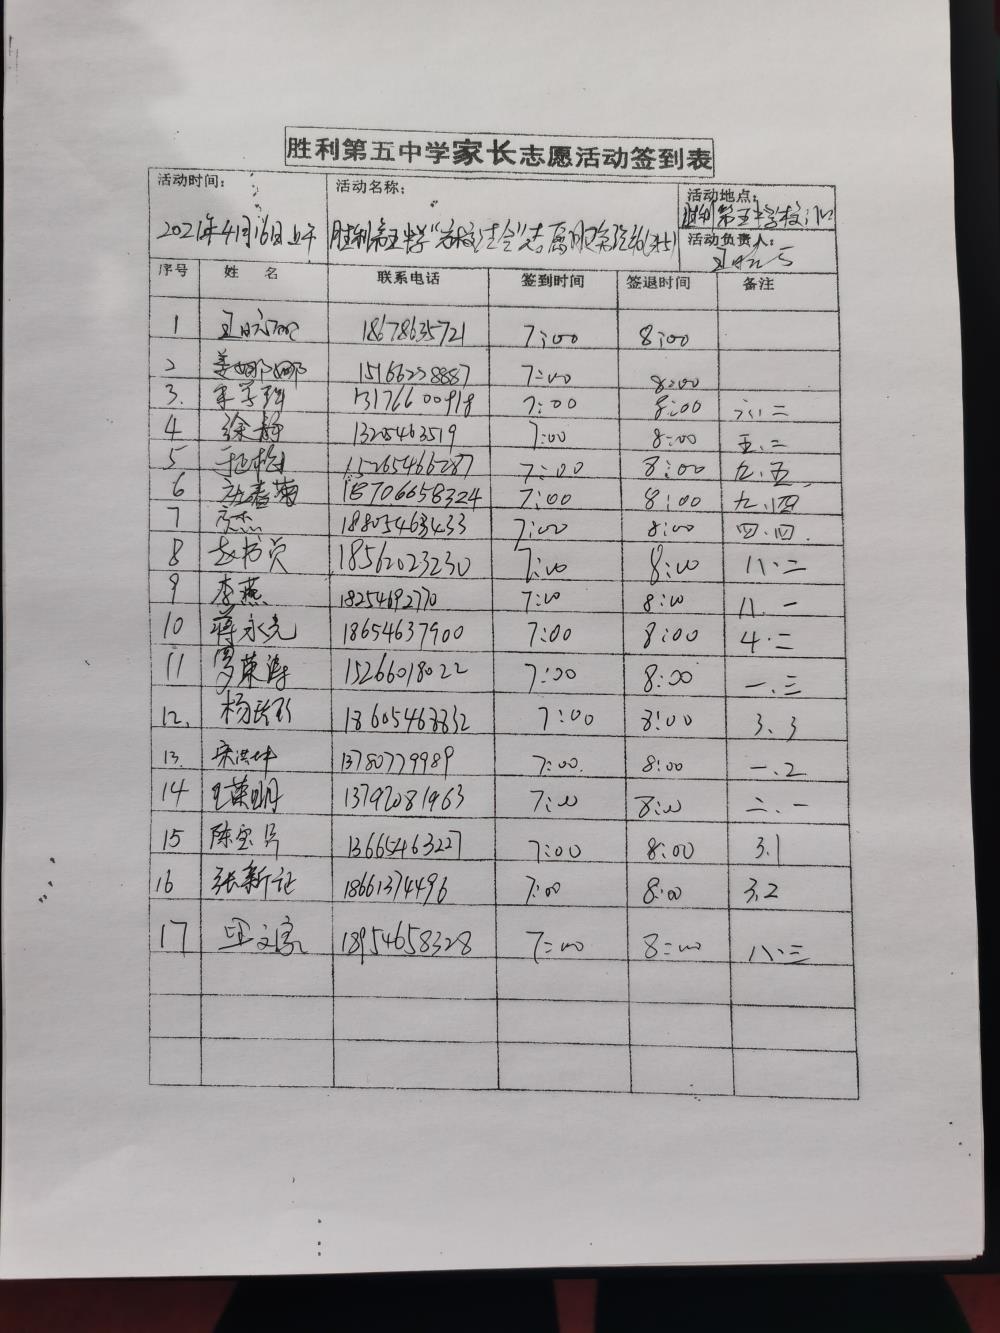 胜利第五中学家长志愿活动签到表
活动时间： 活动名称： 活动地点：
2021年4月16日上午 胜利第五中学 志愿服务 胜利第五中学校门口
活动负责人：
序号 姓名 联系电话 签到时间 签退时间 备注
1 18678635721 7:00 8:00
2 姜娜娜 15166228887 7:00 8:00
3. 13176600918 7:00 8:00 六.二
4 徐静 13205463519 7:00 8:00 五.二
5 15265466287 7:00 8:00 九.五
6 18706658324 7:00 8:00 九.四
7 18805463433 7:00 8:00 四.四.
8 18562023230 7:00 8:00 八.二
9 李燕 18254692770 7:00 8:00 八.一
10 蒋永光 18654637900 7:00 8:00 4.二
11 罗荣涛 15266018022 7:00 8:00 一.三
12. 18605463832 7:00 8:00 3.3
13. 宋洪坤 13780779989 7:00. 8:00 一.2
14 13792081963 7:00 8:00 二.一
15 陈宝月 13665463227 7:00 8:00 3.1
16 张新 18661374496 7:00 8:00 3.2
17 18954658328 7:00 8:00 八.三